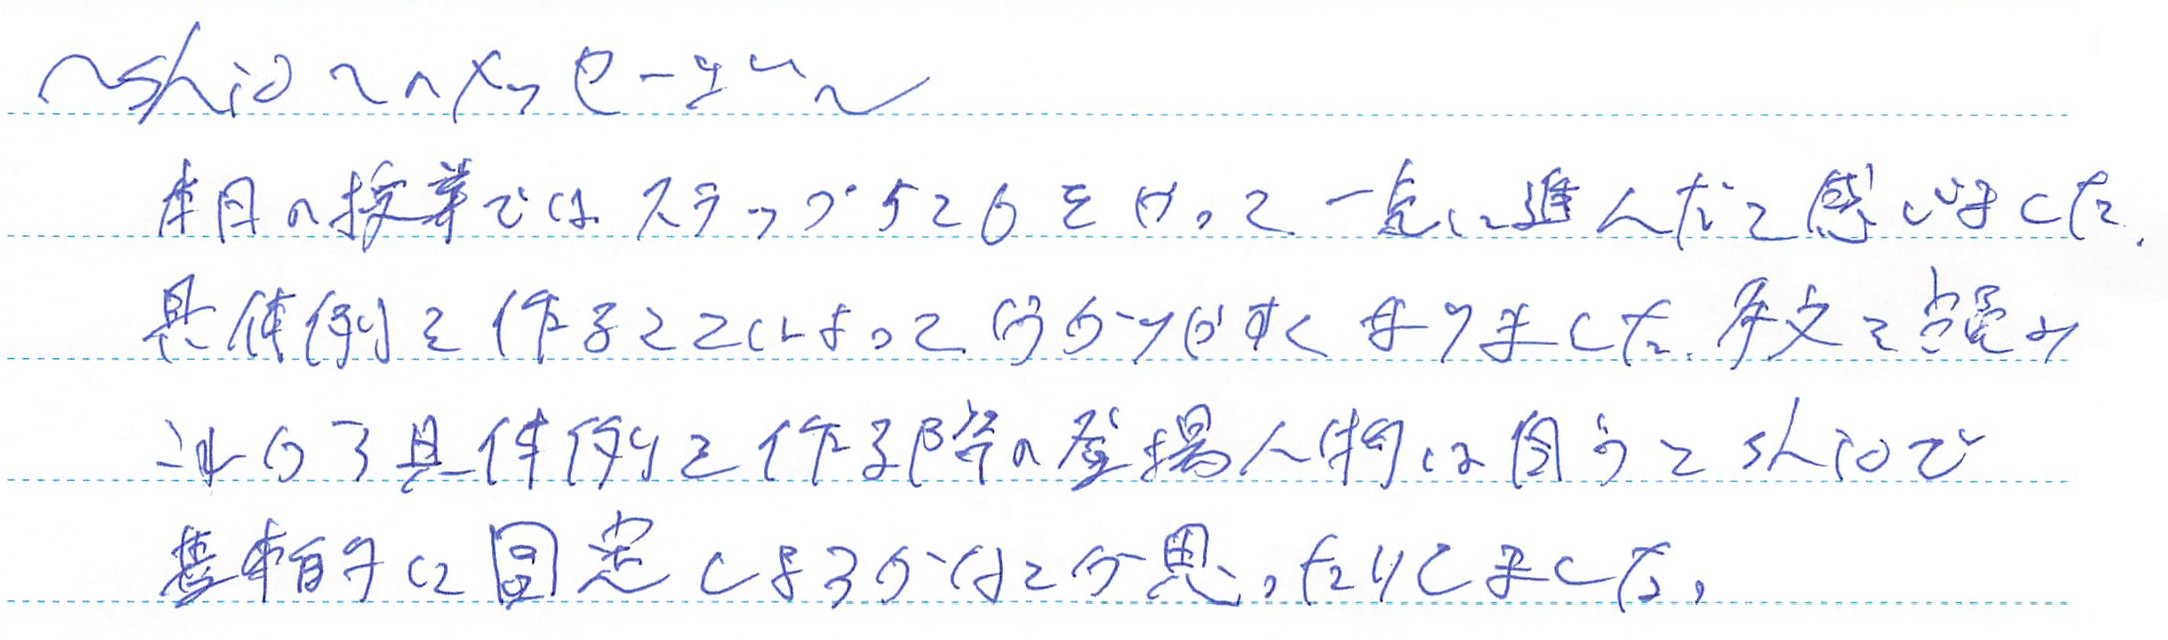 〜shioへのメッセージ〜
本日の授業ではステップ5と6をやって一気に進んだと感じました.
具体例を作ることによってわかりやすくなりました.本文を読み
ながら具体例を作る際の登場人物は自分とshioで
基本的に固定しようかなとか思ったりしました.